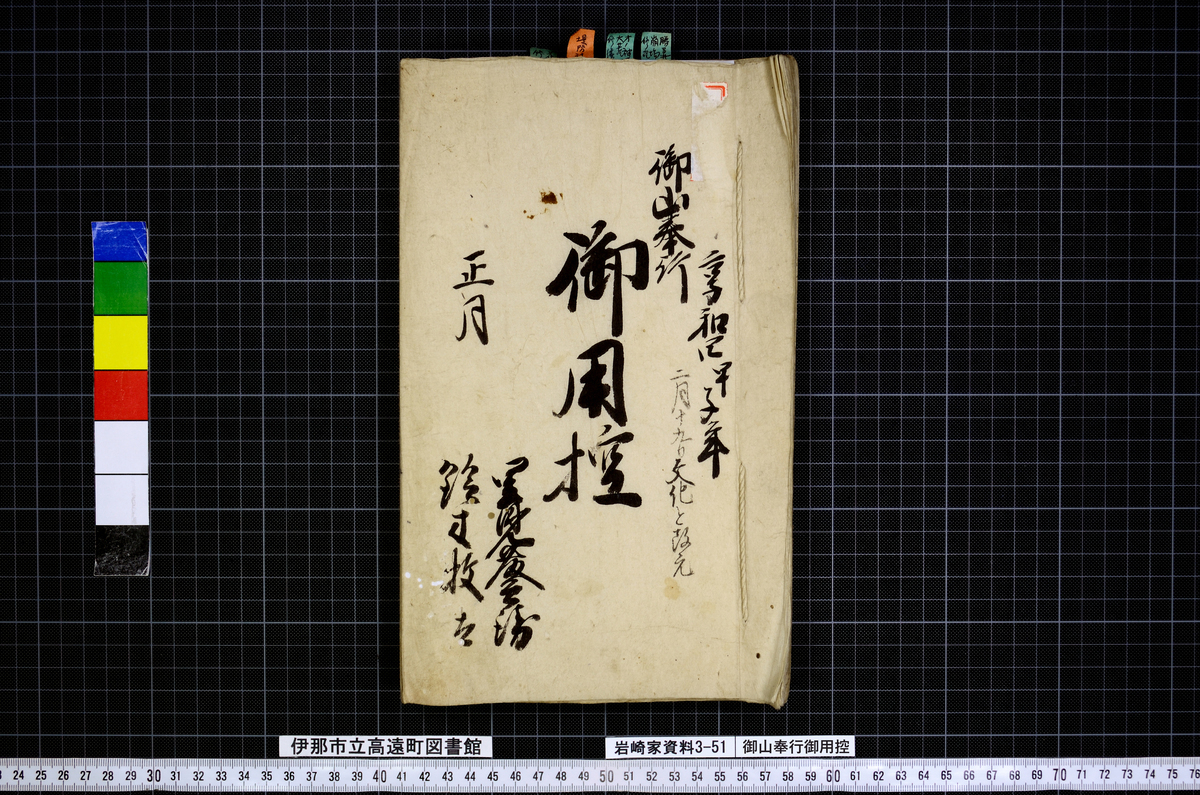 享和四甲子年
二月十九日文化と改元
御山奉行
御用控
正月
伊那市立高遠町図書館
岩崎家資料3-51
御山奉行御用控
24 25 26 27 28 29 30 31 32 33 34 35 36 37 38 39 40 41 42 43 44 45 46 47 48 49 50 51 52 53 54 55 56 57 58 59 60 61 62 63 64 65 66 67 68 69 70 71 72 73 74 75 76